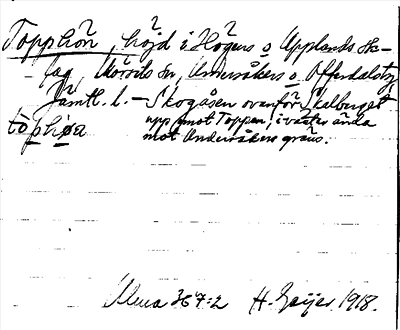 Topphön, höjd i Högens o Upplands sk-
fag, Mörsils sn, Undersåkers o Offerdals tg
Jämtl. l. – Skogåsen ovanför Kalberget
tòphøn upp mot Toppen, i väster ända
mot Undersåkers gräns.
Ulma 367:2 H. Geijer 1918.